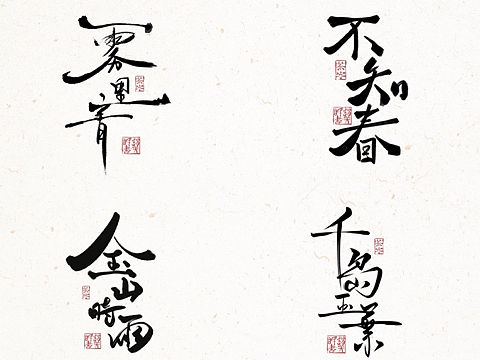 雾里青
不知春
金山時雨
千岛玉葉